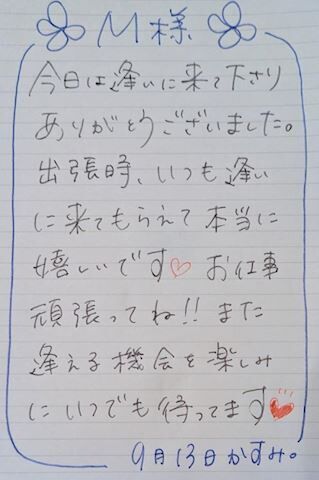 M様
今日は逢いに来て下さり
ありがとうございました。
出張時、いつも逢い
に来てもらえて本当に
嬉しいです♡ お仕事
頑張ってね!! また
逢える機会を楽しみ
にいつでも待ってます♥
9月13日かすみ。